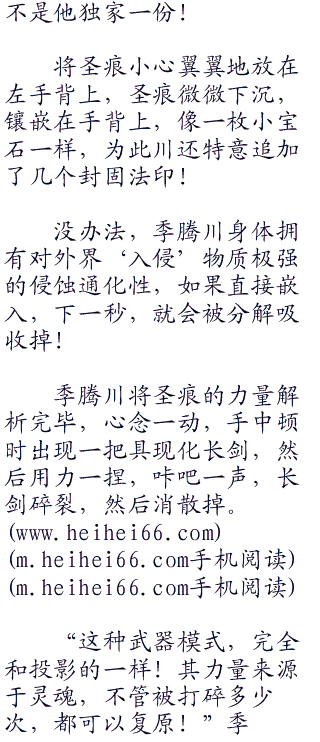 不是他独家一份！
将圣痕小心翼翼地放在
左手背上，圣痕微微下沉，
镶嵌在手背上，像一枚小宝
石一样，为此川还特意追加
了几个封固法印！
没办法，季腾川身体拥
有对外界‘入侵’物质极强
的侵蚀通化性，如果直接嵌
入，下一秒，就会被分解吸
收掉！
季腾川将圣痕的力量解
析完毕，心念一动，手中顿
时出现一把具现化长剑，然
后用力一捏，咔吧一声，长
剑碎裂，然后消散掉。
(www.heihei66.com)
(m.heihei66.com手机阅读)
(m.heihei66.com手机阅读)
“这种武器模式，完全
和投影的一样！其力量来源
于灵魂，不管被打碎多少
次，都可以复原！”季